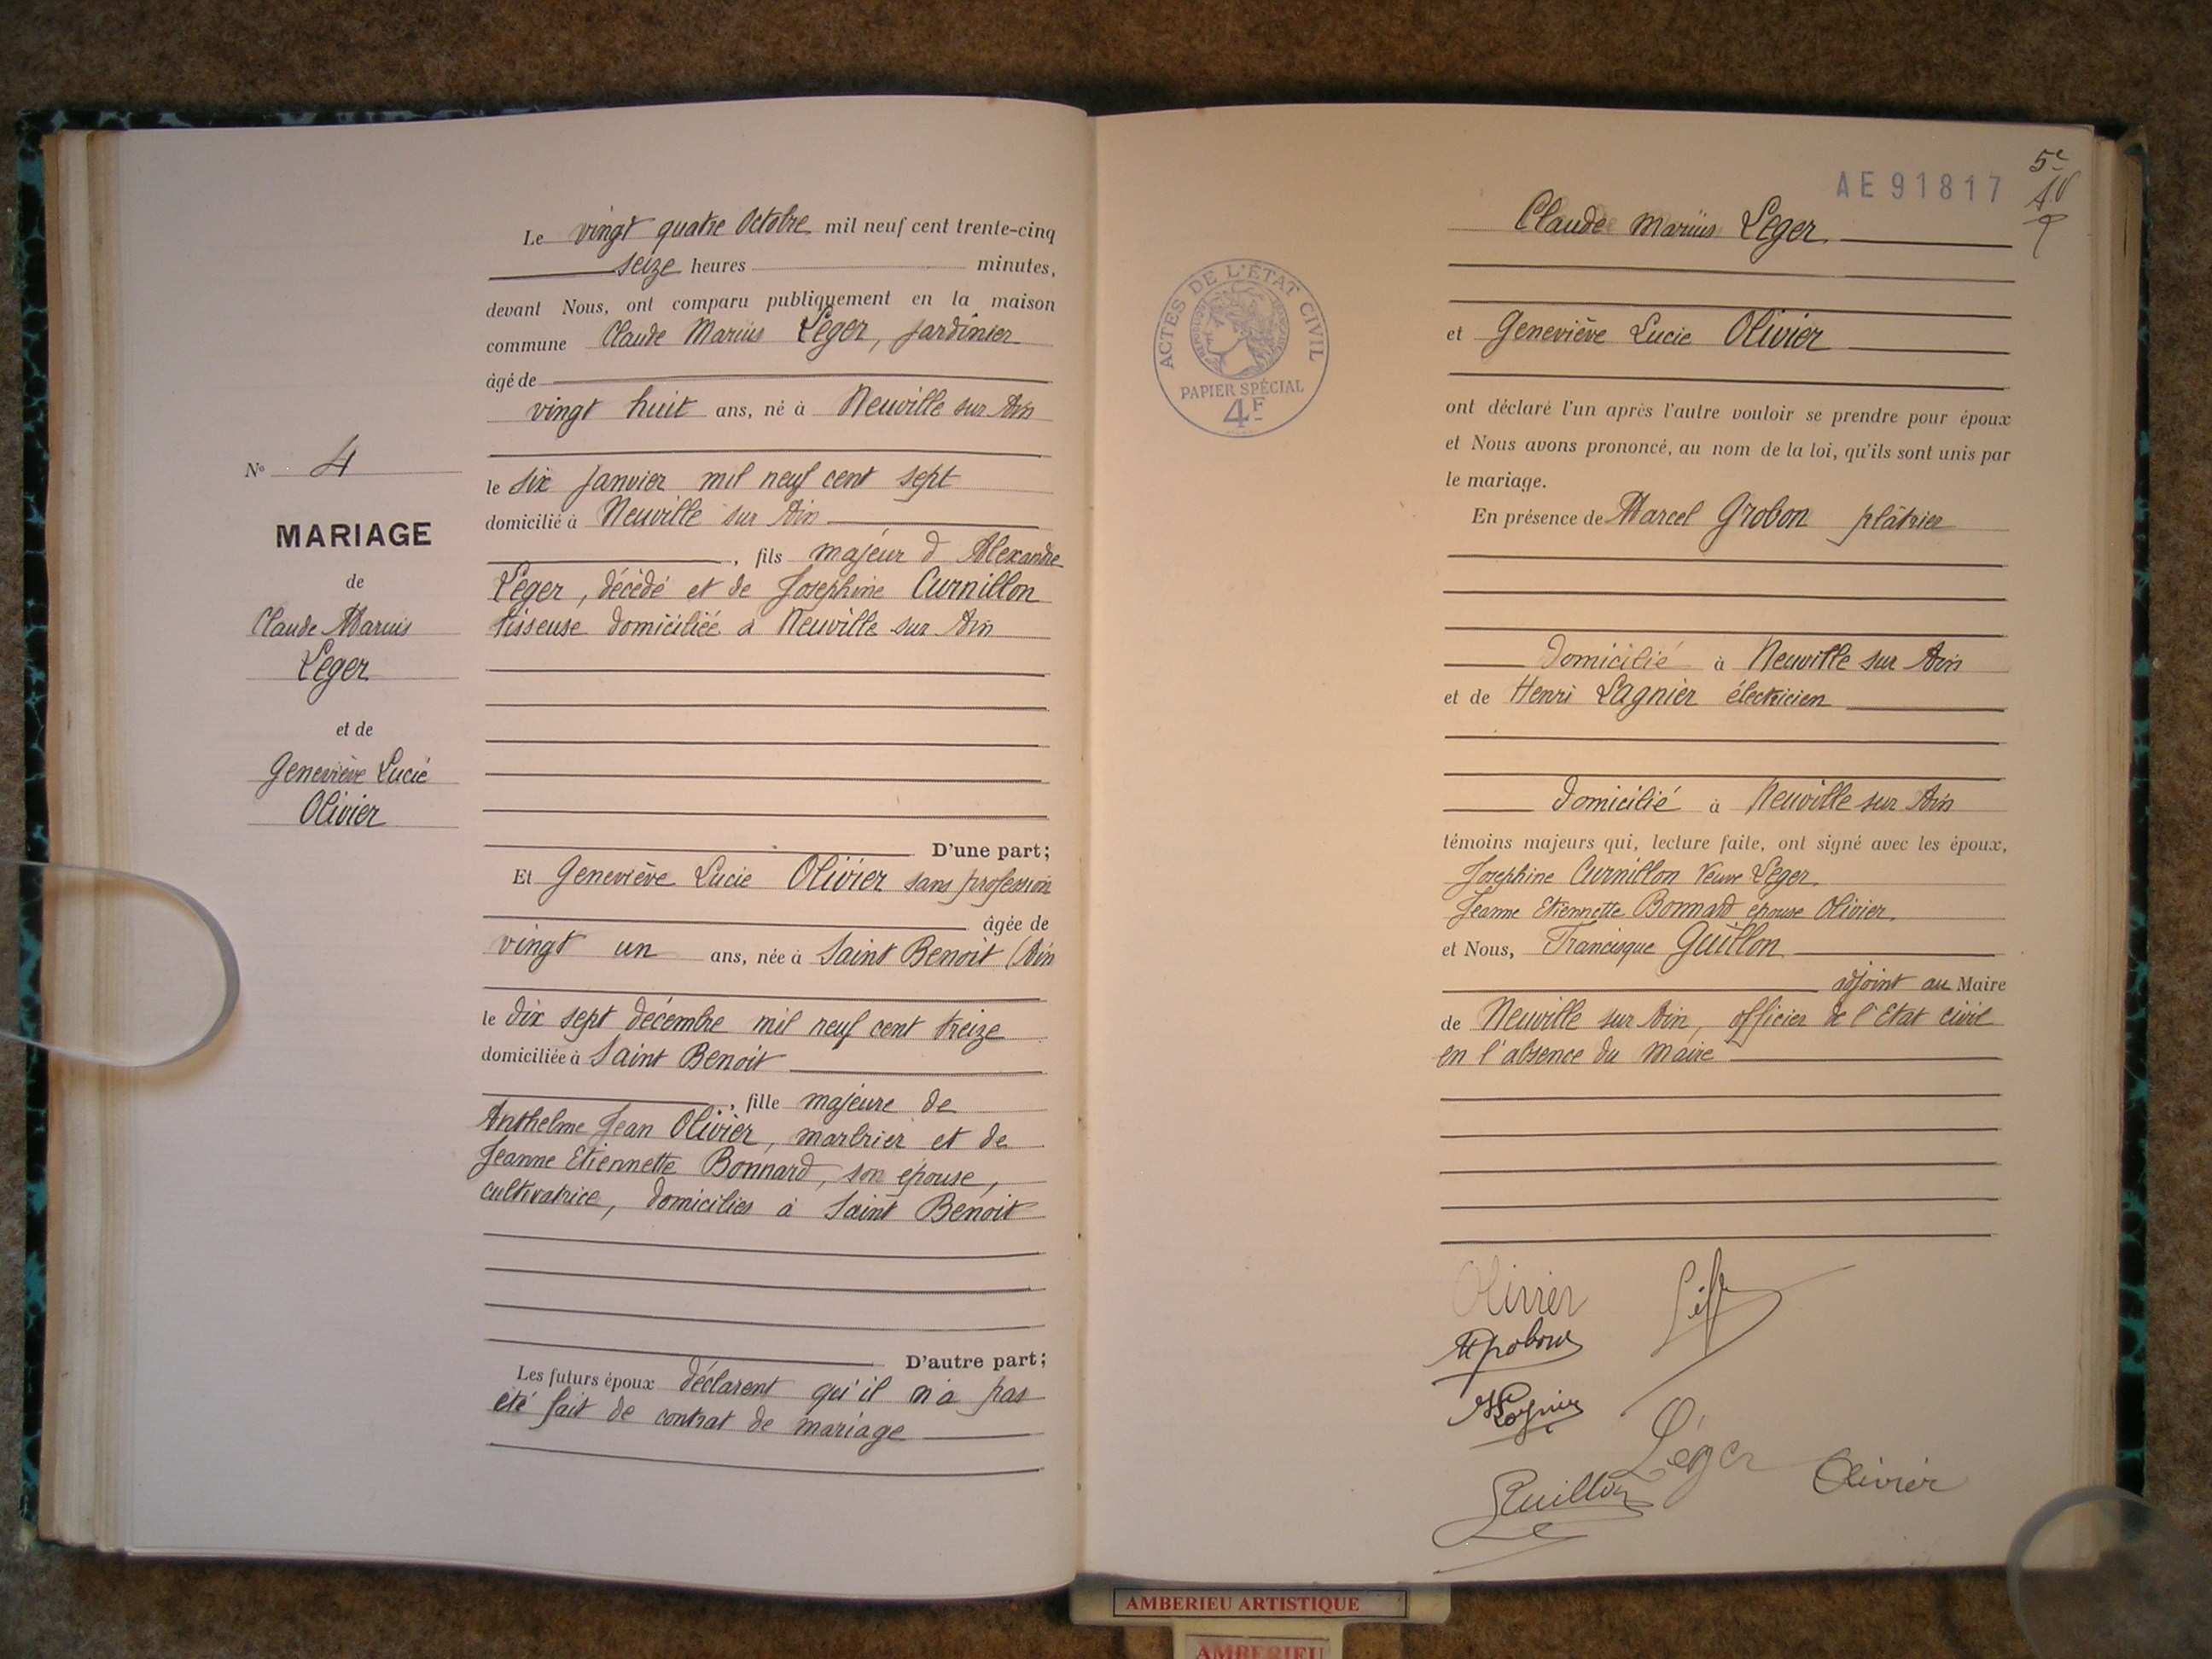 N° 4
MARIAGE
de
Claude Marius
Léger
et de
Geneviève Lucie
Olivier
Le vingt quatre Octobre mil neuf cent trente-cinq
seize heures minutes,
devant Nous, ont comparu publiquement en la maison
commune Claude Marius Léger, jardinier
âgé de
vingt huit ans, né à Neuville sur Ain
le six janvier mil neuf cent sept
domicilié à Neuville sur Ain
, fils majeur d'Alexandre
Léger, décédé et de Josephine Curnillon
tisseuse domiciliée à Neuville sur Ain
D'une part;
Et Geneviève Lucie Olivier sans profession
âgée de
vingt un ans, née à Saint Benoit (Ain
le dix sept décembre mil neuf cent treize
domiciliée à Saint Benoit
, fille majeure de
Anthelme Jean Olivier, marbrier et de
Jeanne Etiennette Bonnard, son épouse,
cultivatrice, domiciliés à Saint Benoit
D'autre part;
Les futurs époux déclarent qu'il n'a pas
été fait de contrat de mariage
AE 91817
5e
ACTES DE L'ÉTAT CIVIL
PAPIER SPÉCIAL
4F
Claude Marius Léger
et Geneviève Lucie Olivier
ont déclaré l'un après l'autre vouloir se prendre pour époux
et Nous avons prononcé, au nom de la loi, qu'ils sont unis par
le mariage.
En présence de Marcel Grobon plâtrier
Domicilié à Neuville sur Ain
et de Henri Lagnier électricien
Domicilié à Neuville sur Ain
témoins majeurs qui, lecture faite, ont signé avec les époux,
Josephine Curnillon Veuve Léger
Jeanne Etiennette Bonnard épouse Olivier
et Nous, Francisque Guillon
adjoint au Maire
de Neuville sur Ain, officier de l'Etat civil
en l'absence du Maire
Olivier
Léger Olivier
Guillon
AMBERIEU ARTISTIQUE
AMBERIEU